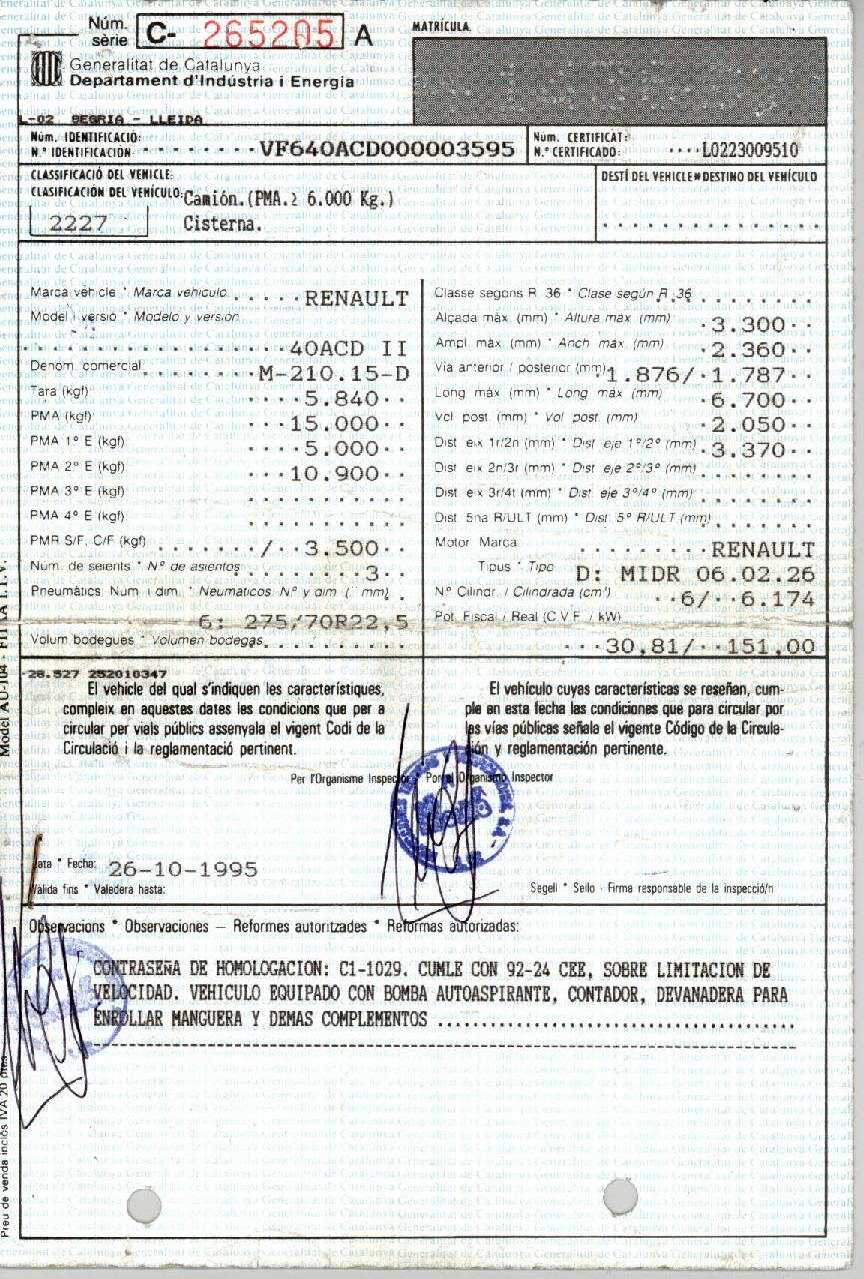 Núm. sèrie C- 265205 A
MATRÍCULA
Generalitat de Catalunya
Departament d'Indústria i Energia
L-02 SEGRIA - LLEIDA
Núm. IDENTIFICACIÓ:
N.º IDENTIFICACIÓN ········ VF640ACD000003595
Núm. CERTIFICAT:
N.º CERTIFICADO: ····L0223009510
CLASSIFICACIÓ DEL VEHICLE:
CLASIFICACIÓN DEL VEHÍCULO: Camión.(PMA.≥ 6.000 Kg.)
2227 Cisterna.
DESTÍ DEL VEHICLE * DESTINO DEL VEHÍCULO
Marca vehicle * Marca vehículo ·····RENAULT
Model i versió * Modelo y versión
················40ACD II
Denom. comercial ········M-210.15-D
Tara (kgf) ····5.840··
PMA (kgf) ···15.000··
PMA 1º E (kgf) ····5.000··
PMA 2º E (kgf) ···10.900··
PMA 3º E (kgf)
PMA 4º E (kgf)
PMR S/F, C/F (kgf) ·······/··3.500··
Núm. de seients * Nº de asientos ·········3··
Pneumàtics Núm i dim * Neumaticos Nº y dim ( mm)
6: 275/70R22,5
Volum bodegues * Volumen bodegas
Classe segons R 36 * Clase según R 36
Alçada màx (mm) * Altura máx (mm) ·3.300··
Ampl màx (mm) * Anch máx (mm) ·2.360··
Via anterior / posterior (mm) ·1.876/·1.787··
Long màx (mm) * Long máx (mm) ·6.700··
Vol post. (mm) * Vol post. (mm) ·2.050··
Dist eix 1r/2n (mm) * Dist eje 1º/2º (mm) ·3.370··
Dist eix 2n/3r (mm) * Dist eje 2º/3º (mm)
Dist eix 3r/4t (mm) * Dist eje 3º/4º (mm)
Dist 5na R/ULT (mm) * Dist 5º R/ULT (mm)
Motor Marca ·········RENAULT
Tipus * Tipo D: MIDR 06.02.26
Nº Cilindr. / Cilindrada (cm³) ··6/··6.174
Pot Fiscal / Real (C V F / kW)
···30,81/··151,00
28.527 252010347
El vehicle del qual s'indiquen les característiques,
compleix en aquestes dates les condicions que per a
circular per vials públics assenyala el vigent Codi de la
Circulació i la reglamentació pertinent.
El vehículo cuyas características se reseñan, cum-
ple en esta fecha las condiciones que para circular por
las vías públicas señala el vigente Código de la Circula-
ción y reglamentación pertinente.
Per l'Organisme Inspector * Por el Organismo Inspector
Data * Fecha: 26-10-1995
Vàlida fins * Valedera hasta:
Segell * Sello - Firma responsable de la inspecció/n
Observacions * Observaciones — Reformes autoritzades * Reformas autorizadas:
CONTRASEÑA DE HOMOLOGACION: C1-1029. CUMLE CON 92-24 CEE, SOBRE LIMITACION DE
VELOCIDAD. VEHICULO EQUIPADO CON BOMBA AUTOASPIRANTE, CONTADOR, DEVANADERA PARA
ENROLLAR MANGUERA Y DEMAS COMPLEMENTOS
Preu de venda inclòs IVA 20 ptes.